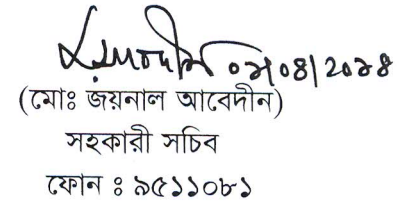 ০৯/০৪/২০১৪
(মোঃ জয়নাল আবেদীন)
সহকারী সচিব
ফোন ঃ ৯৫১১০৮১